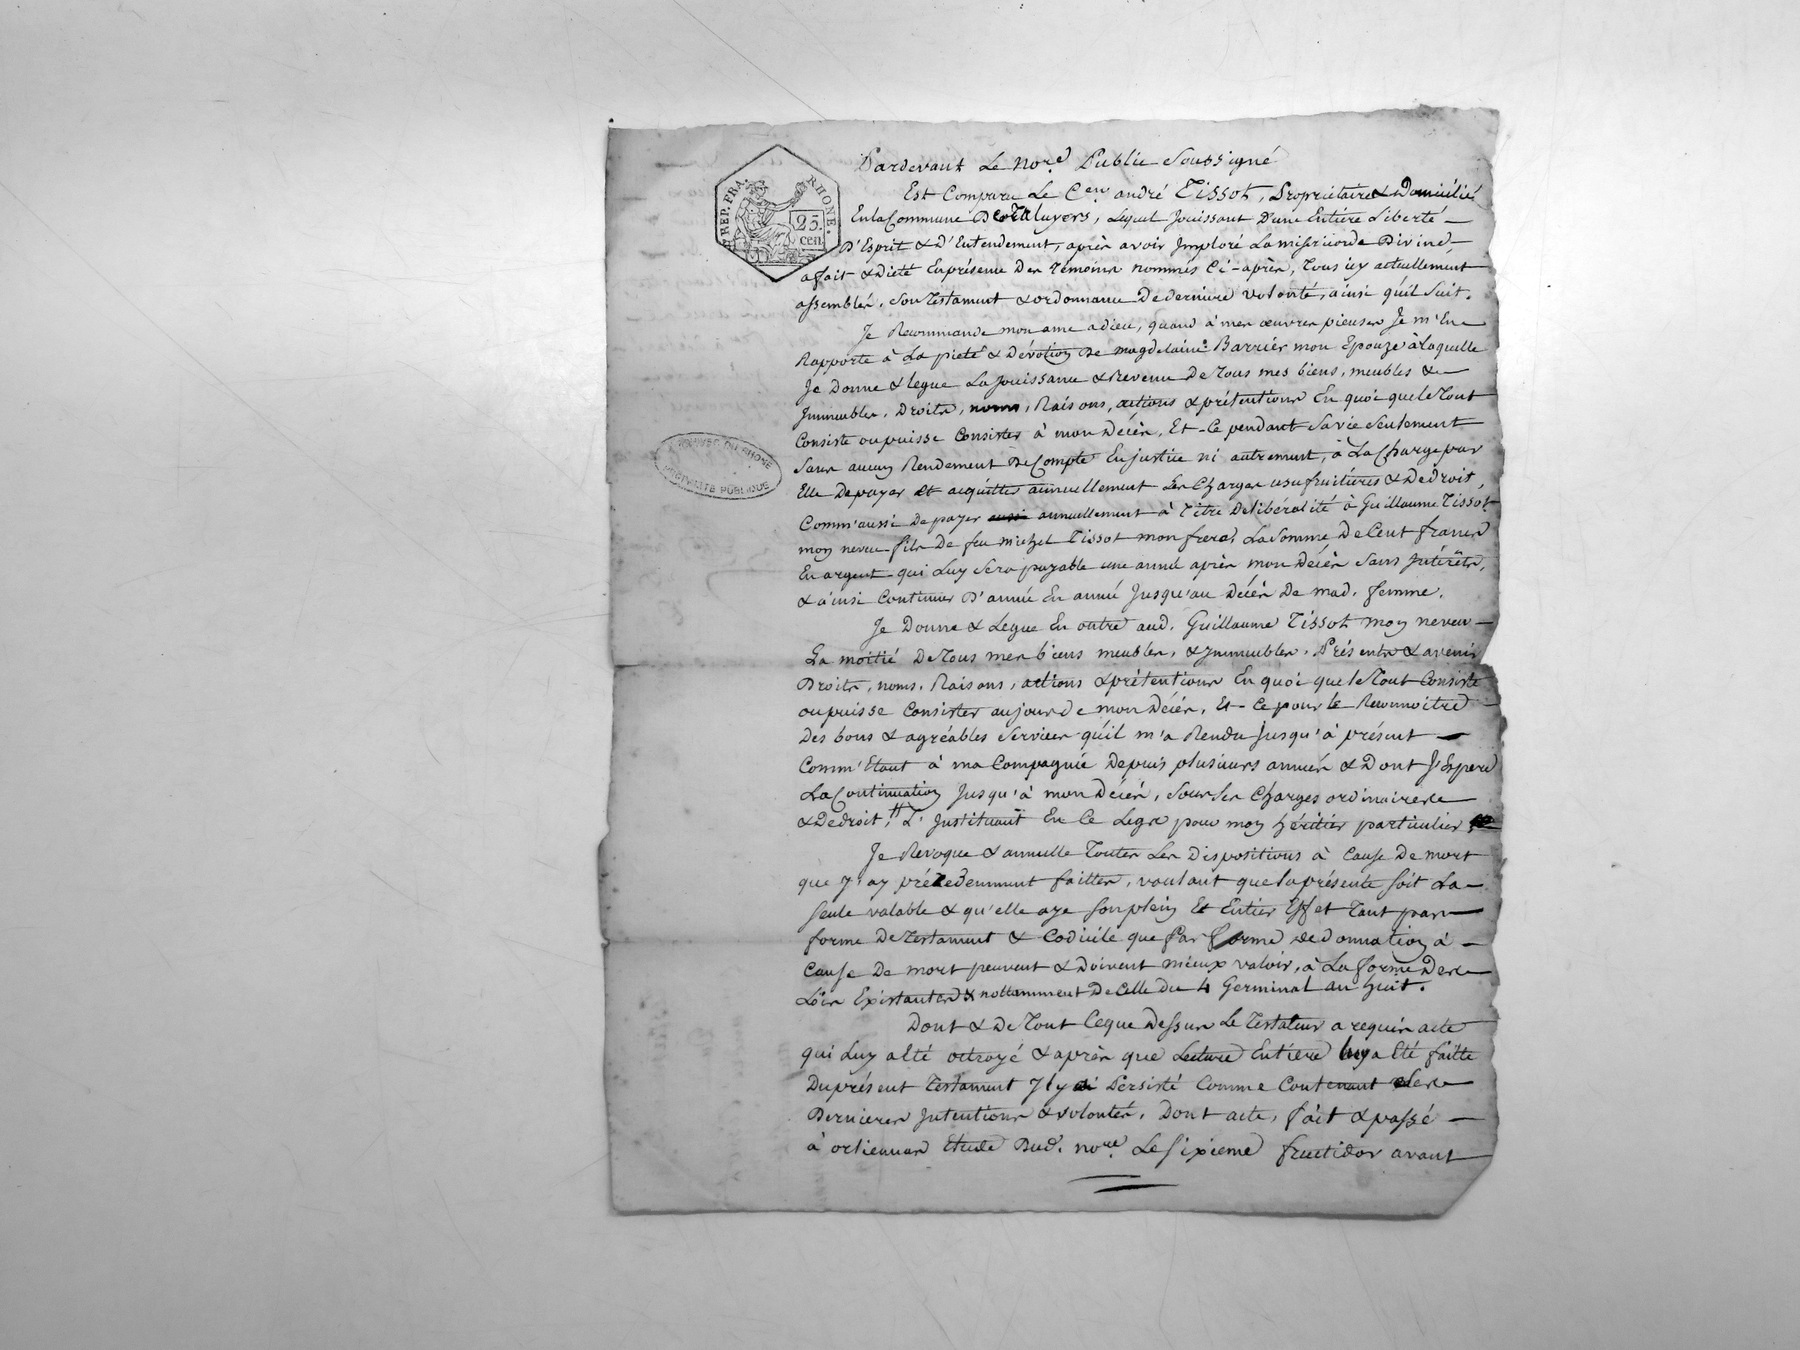 REP. FRA. RHONE.
25.
cen.
Pardevant Le No.re Public Soussigné
Est Comparu Le C.en andré Tissot, Propriétaire & Domicilié
En la Commune De Taluyers, Lequel Jouissant D'une Entière Liberté
D'Esprit & D'Entendement, après avoir Imploré La misericorde Divine,
a fait & Dicté En présence Des Témoins nommés Ci-après, Tous icy actuellement
assemblés, Son Testament & ordonnance De derniere volonté, ainsi qu'il Suit.
Je Recommande mon ame a dieu, quand à mes œuvres pieuses Je m'En
Rapporte à La pieté & Dévotion De magdelaine Barrier mon Epouze a Laquelle
Je Donne & legue La Jouissance & Revenu De Tous mes biens, meubles &
Immeubles, Droits, noms, Raisons, actions & prétentions En quoi que le Tout
Consiste ou puisse Consister à mon Décès, Et-Ce pendant Sa vie Seulement
Sans aucun Rendement De Compte En justice ni autrement, à La Charge par
Elle De payer et acquitter annuellement Les Charges usufruitières & De droit,
Comm'aussi De payer aussi annuellement à Titre De libéralité à Guillaume Tissot
mon neveu fils De feu michel Tissot mon frere, La Somme De Cent francs
En argent qui Luy Sera payable une année après mon Décès Sans Intérêts,
& ainsi Continuer D'année En année Jusqu'au Décès De mad. femme.
Je Donne & Legue En outre aud. Guillaume Tissot mon neveu
La moitié De Tous mes biens meubles, & Immeubles, Présents & avenir
Droits, noms, Raisons, actions & prétentions En quoi que le Tout Consiste
ou puisse Consister au jour de mon Décès, Et-Ce pour le Reconnoitre
Des bons & agréables Services qu'il m'a Rendu Jusqu'à présent
Comm'Etant à ma Compagnie Depuis plusieurs années & Dont J'Espere
La Continuation Jusqu'à mon Décès, Sous les Charges ordinaires
& De droit, L'Instituant En Ce Legs pour mon héritier particulier
Je Revoque & annulle Toutes Les Dispositions à Cause De mort
que J'ay précedemment faittes, voulant que la présente soit La
seule valable & qu'elle aye son plein Et Entier Effet Tant par
forme De Testament & Codicile que Par forme de donnation à
Cause De mort peuvent & Doivent mieux valoir, à La forme Des
Lois Existantes & nottamment De Celle Du 4 Germinal an huit.
Dont & De Tout Ceque Dessus Le Testateur a requis acte
qui Luy a Eté octroyé & après que Lecture Entiere luy a Eté faitte
Du présent Testament Il y a Persisté Comme Contenant Ses
Dernieres Intentions & volontés, Dont acte, fait & passé
à orlienas Etude Dud. no.re Le Sixieme fructidor avant